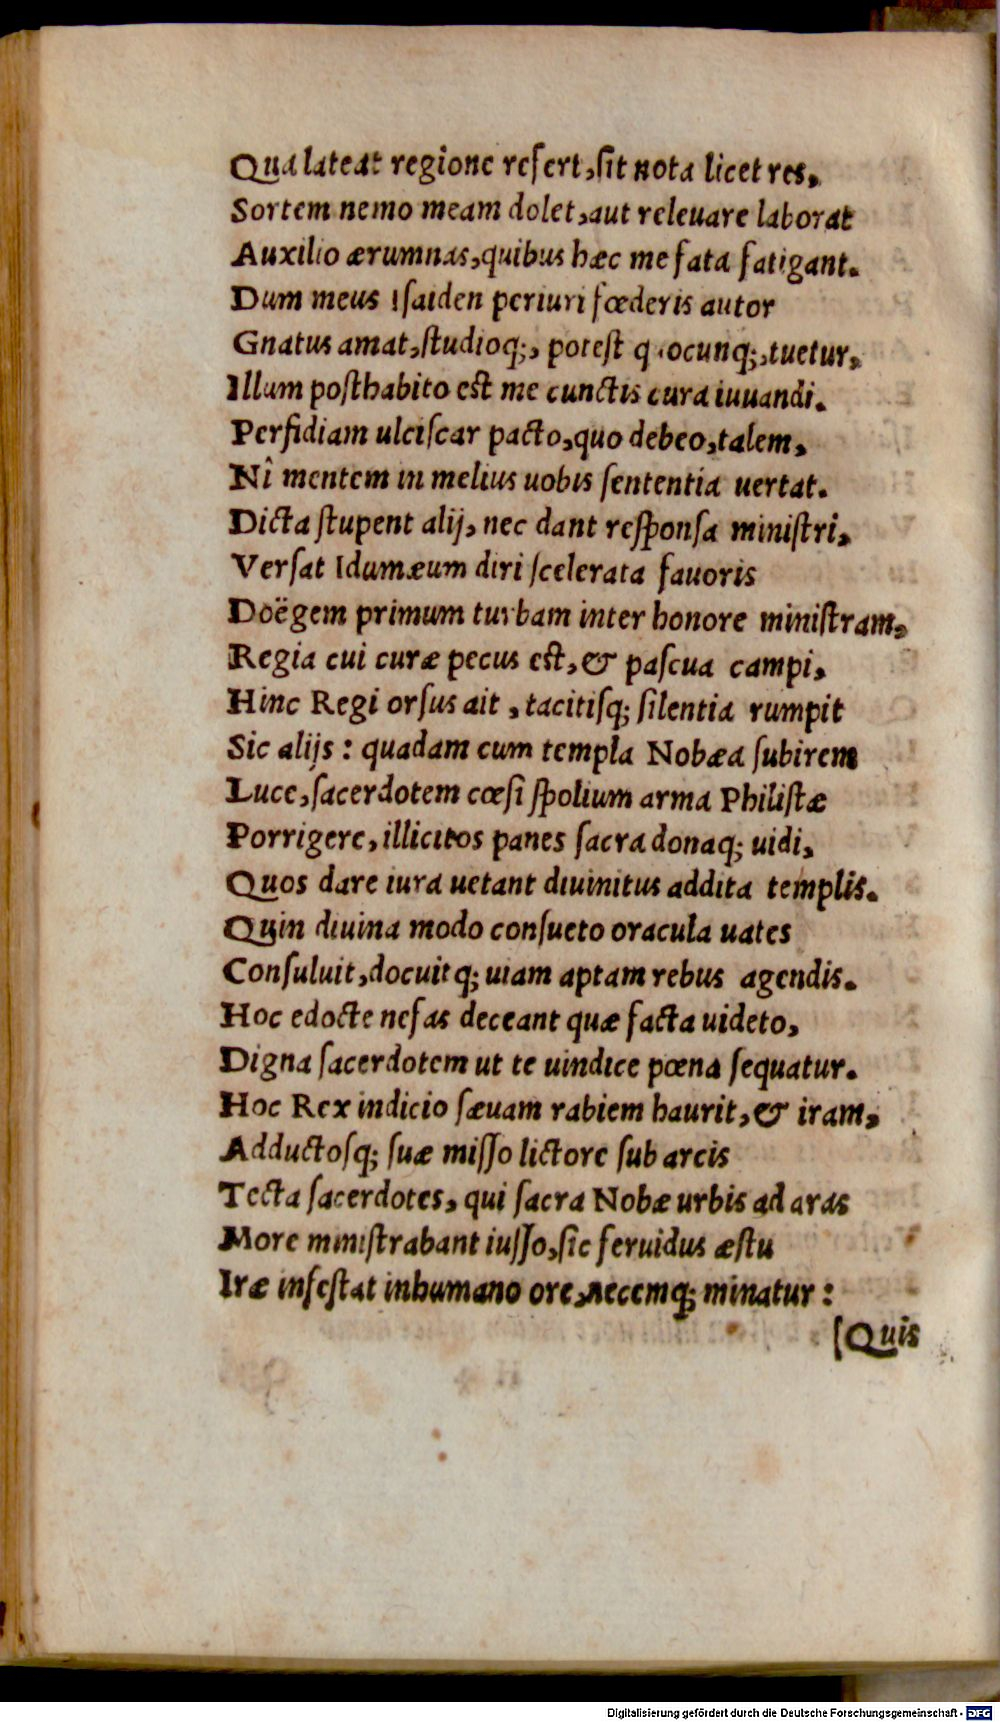 Qua lateat regione refert, ſit nota licet res,
Sortem nemo meam dolet, aut releuare laborat
Auxilio ærumnas, quibus hæc me fata fatigant.
Dum meus Iſaiden periuri fœderis autor
Gnatus amat, ſtudioq;, poteſt quocunq;, tuetur,
Illum poſthabito eſt me cunctis cura iuuandi.
Perfidiam ulciſcar pacto, quo debeo, talem,
Nî mentem in melius uobis ſententia uertat.
Dicta ſtupent alij, nec dant reſponſa miniſtri,
Verſat Idumæum diri ſcelerata fauoris
Doëgem primum turbam inter honore miniſtram,
Regia cui curæ pecus eſt, & paſcua campi,
Hinc Regi orſus ait, tacitiſq; ſilentia rumpit
Sic alijs: quadam cum templa Nobæa ſubirem
Luce, ſacerdotem cœſi ſpolium arma Philiſtæ
Porrigere, illicitos panes ſacra donaq; uidi,
Quos dare iura uetant diuinitus addita templis.
Quin diuina modo conſueto oracula uates
Conſuluit, docuitq; uiam aptam rebus agendis.
Hoc edocte nefas deceant quæ facta uideto,
Digna ſacerdotem ut te uindice pœna ſequatur.
Hoc Rex indicio ſæuam rabiem haurit, & iram,
Adductoſq; ſuæ miſſo lictore ſub arcis
Tecta ſacerdotes, qui ſacra Nobæ urbis ad aras
More miniſtrabant iuſſo, ſic feruidus æſtu
Iræ infeſtat inhumano ore, necemq; minatur:
[Quis
Digitalisierung gefördert durch die Deutsche Forschungsgemeinschaft - DFG